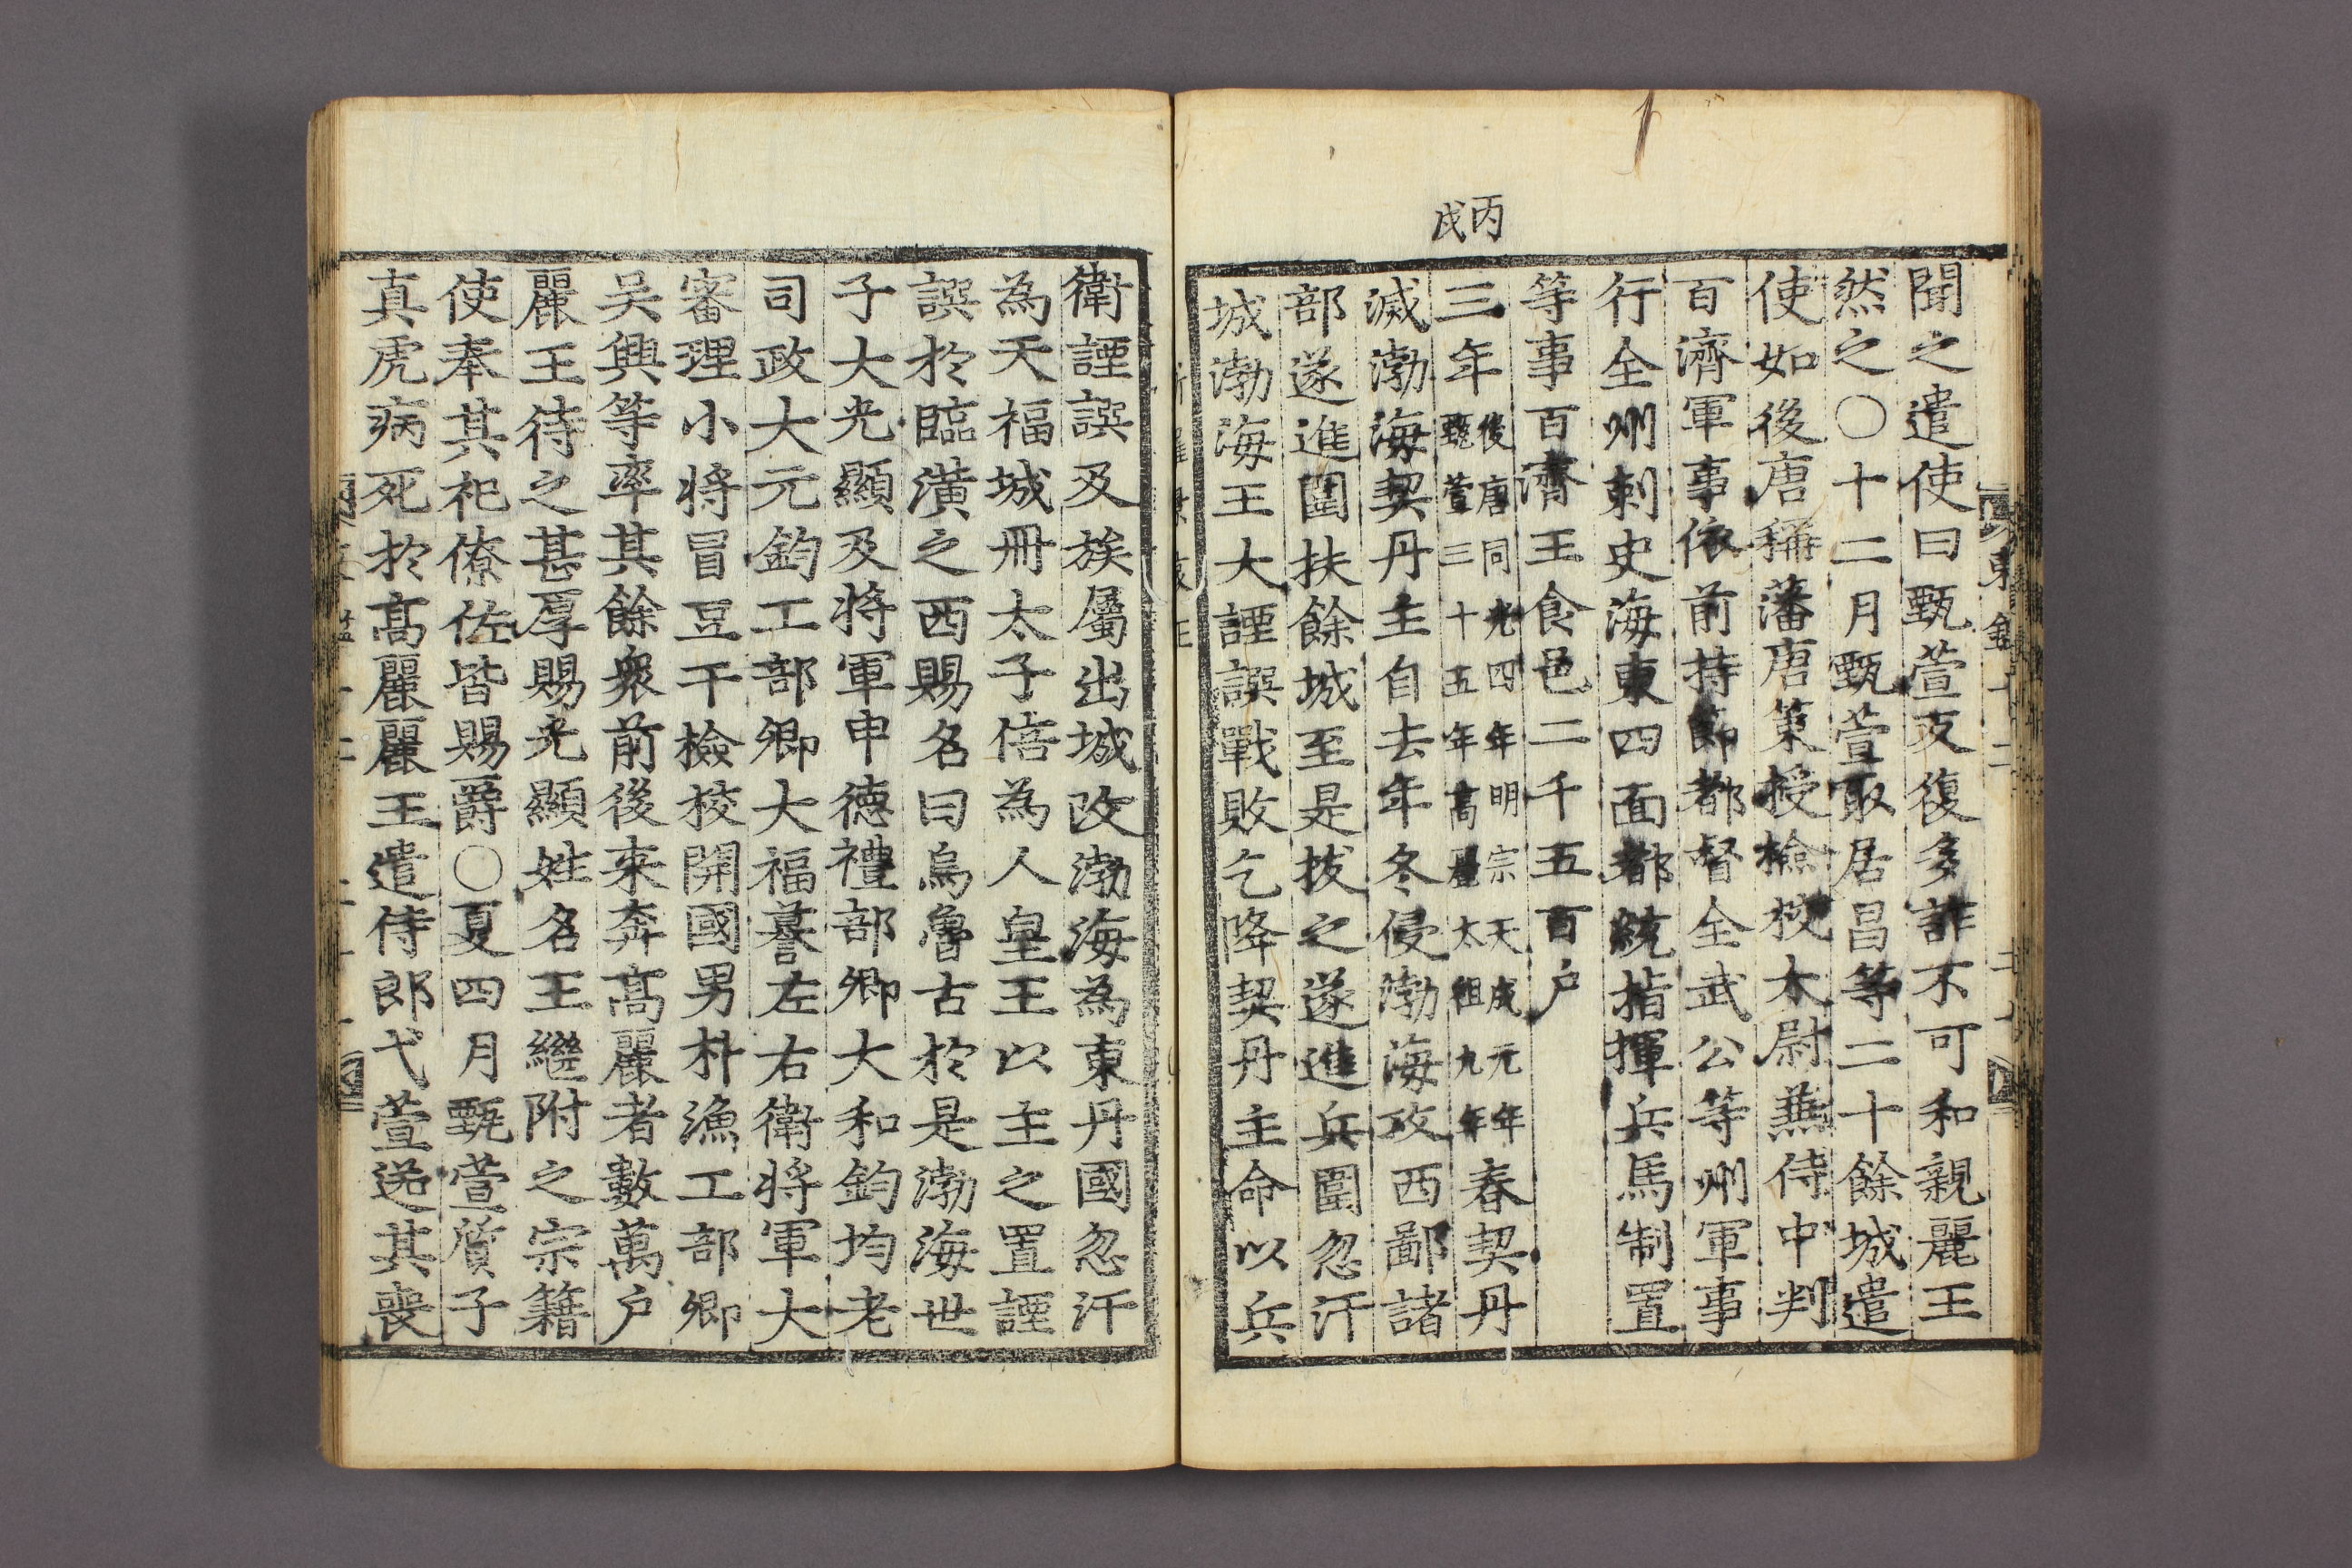 丙戌
聞之遣使曰甄萱反復多詐不可和親麗王
然之〇十二月甄萱取居昌等二十餘城遣
使如後唐稱藩唐策授檢校太尉兼侍中判
百濟軍事依前持節都督全武公等州軍事
行全州刺史海東四面都統指揮兵馬制置
等事百濟王食邑二千五百户
三年後唐同光四年明宗天成元年甄萱三十五年高麗太祖九年春契丹
滅渤海契丹主自去年冬侵渤海攻西鄙諸
部遂進圍扶餘城至是拔之遂進兵圍忽汗
城渤海王大諲譔戰敗乞降契丹主命以兵
衛諲譔及族屬出城改渤海為東丹國忽汗
為天福城冊太子倍為人皇王以主之置諲
譔於臨潢之西賜名曰烏魯古於是渤海世
子大光顯及將軍申德禮部卿大和鈞均老
司政大元鈞工部卿大福謩左右衛將軍大
審理小將冒豆干檢校開國男朴漁工部卿
吴興等率其餘衆前後来奔高麗者數萬户
麗王待之甚厚賜光顯姓名王繼附之宗籍
使奉其祀僚佐皆賜爵〇夏四月甄萱質子
真虎病死於高麗麗王遣侍郎弋萱送其喪